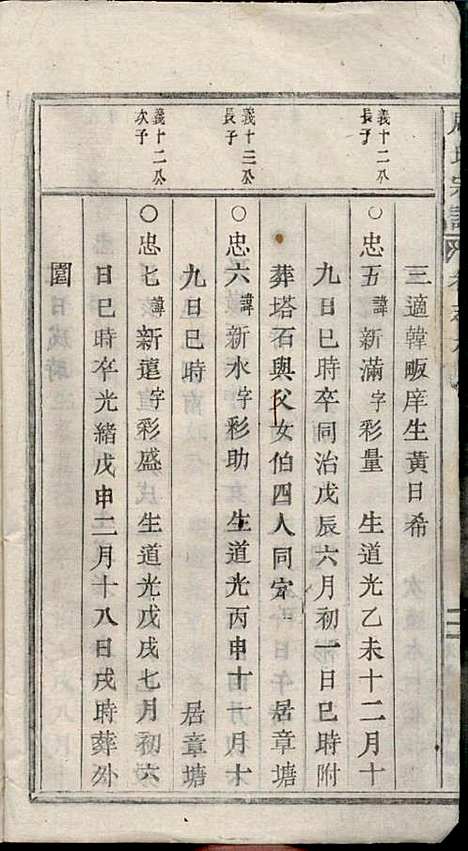 三適韓畈庠生黃日希
義十二公
長子
○忠五諱新滿字彩量 生道光乙未十二月十
九日巳時卒同治戊辰六月初一日巳時附
葬塔石與父女伯四人同穴 居章塘
義十三公
長子
○忠六諱新水字彩助 生道光丙申十一月十
九日巳時 居章塘
義十二公
次子
○忠七諱新遠字彩盛 生道光戊戌七月初六
日巳時卒光緒戊申二月十八日戌時葬外
園